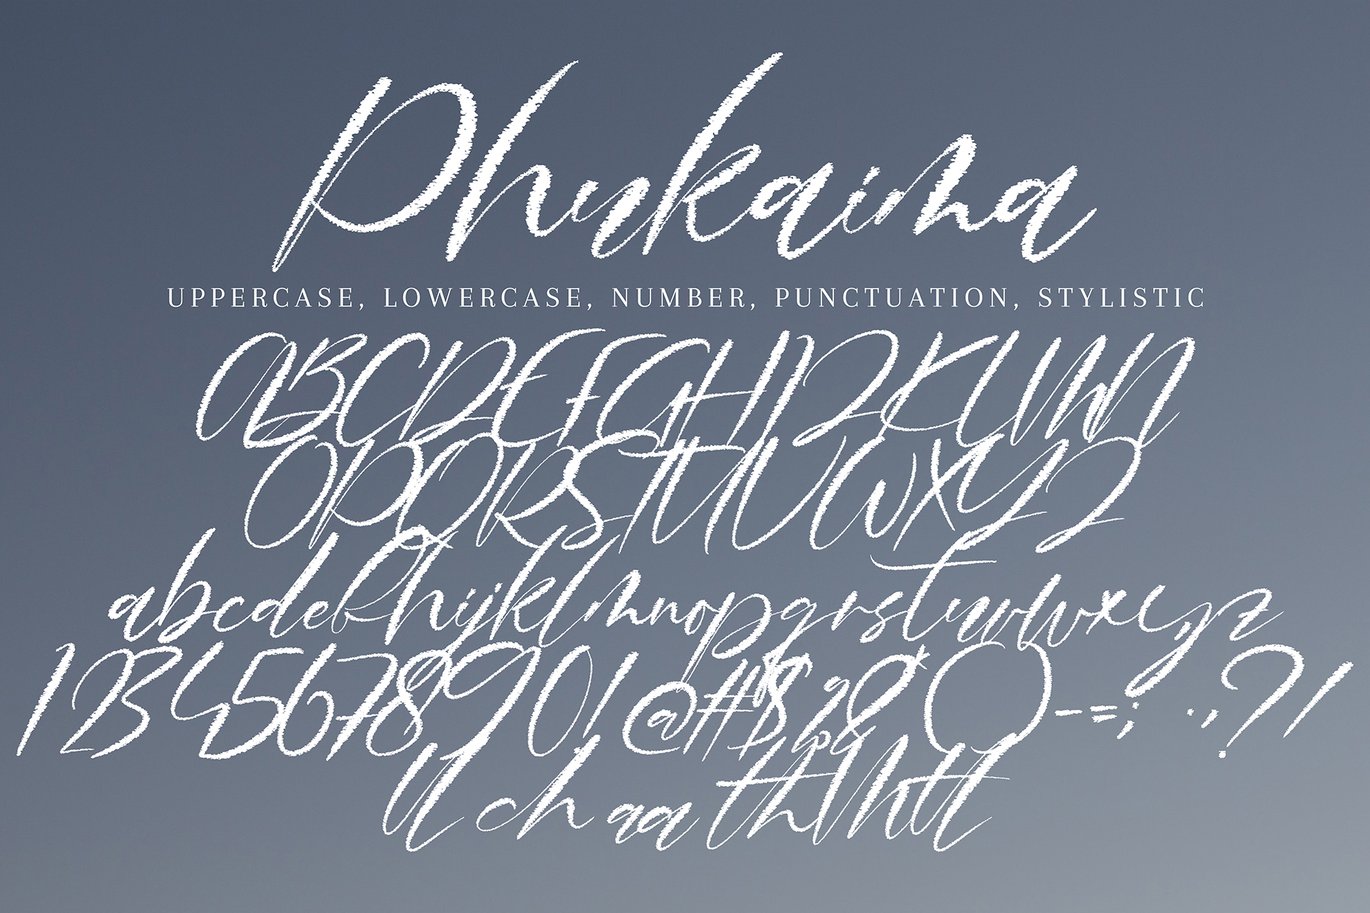 Phukaina
UPPERCASE, LOWERCASE, NUMBER, PUNCTUATION, STYLISTIC
ABCDEFGHIJKLMN
OPQRSTUVWXYZ
abcdefghijklmnopqrstuvwxyz
1234567890!@#$%&*()-=;:.,?/
ll ch aa th lh tt